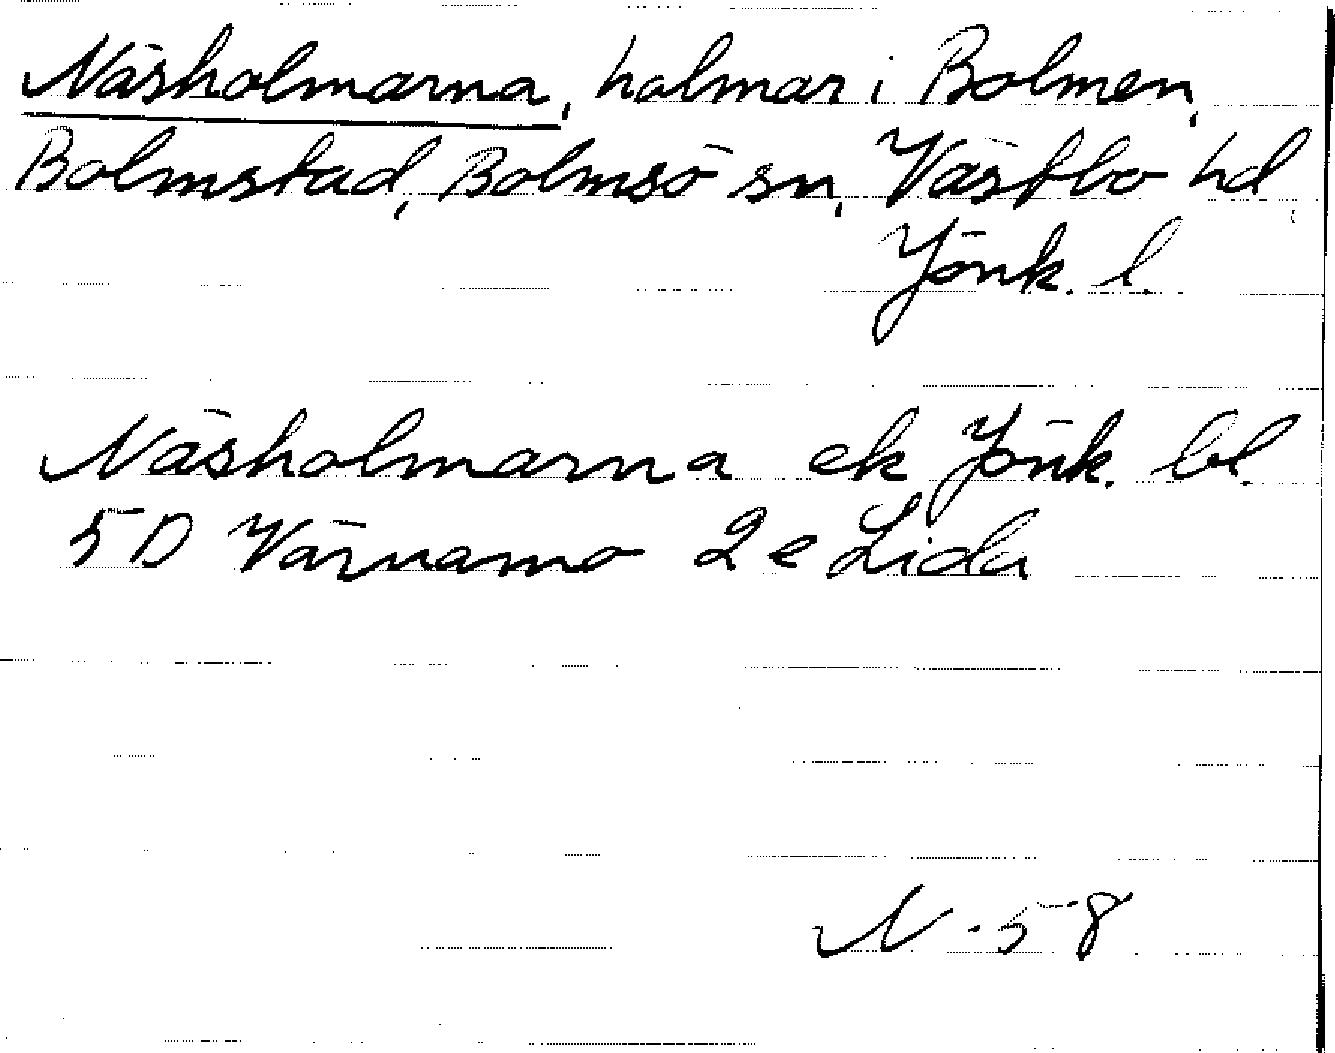 Näsholmarna, holmar i Bolmen,
Bolmstad, Bolmsö sn, Västbo hd,
Jönk. l.
Näsholmarna ek Jönk. bl.
5D Värnamo 2e Lida
N. 58